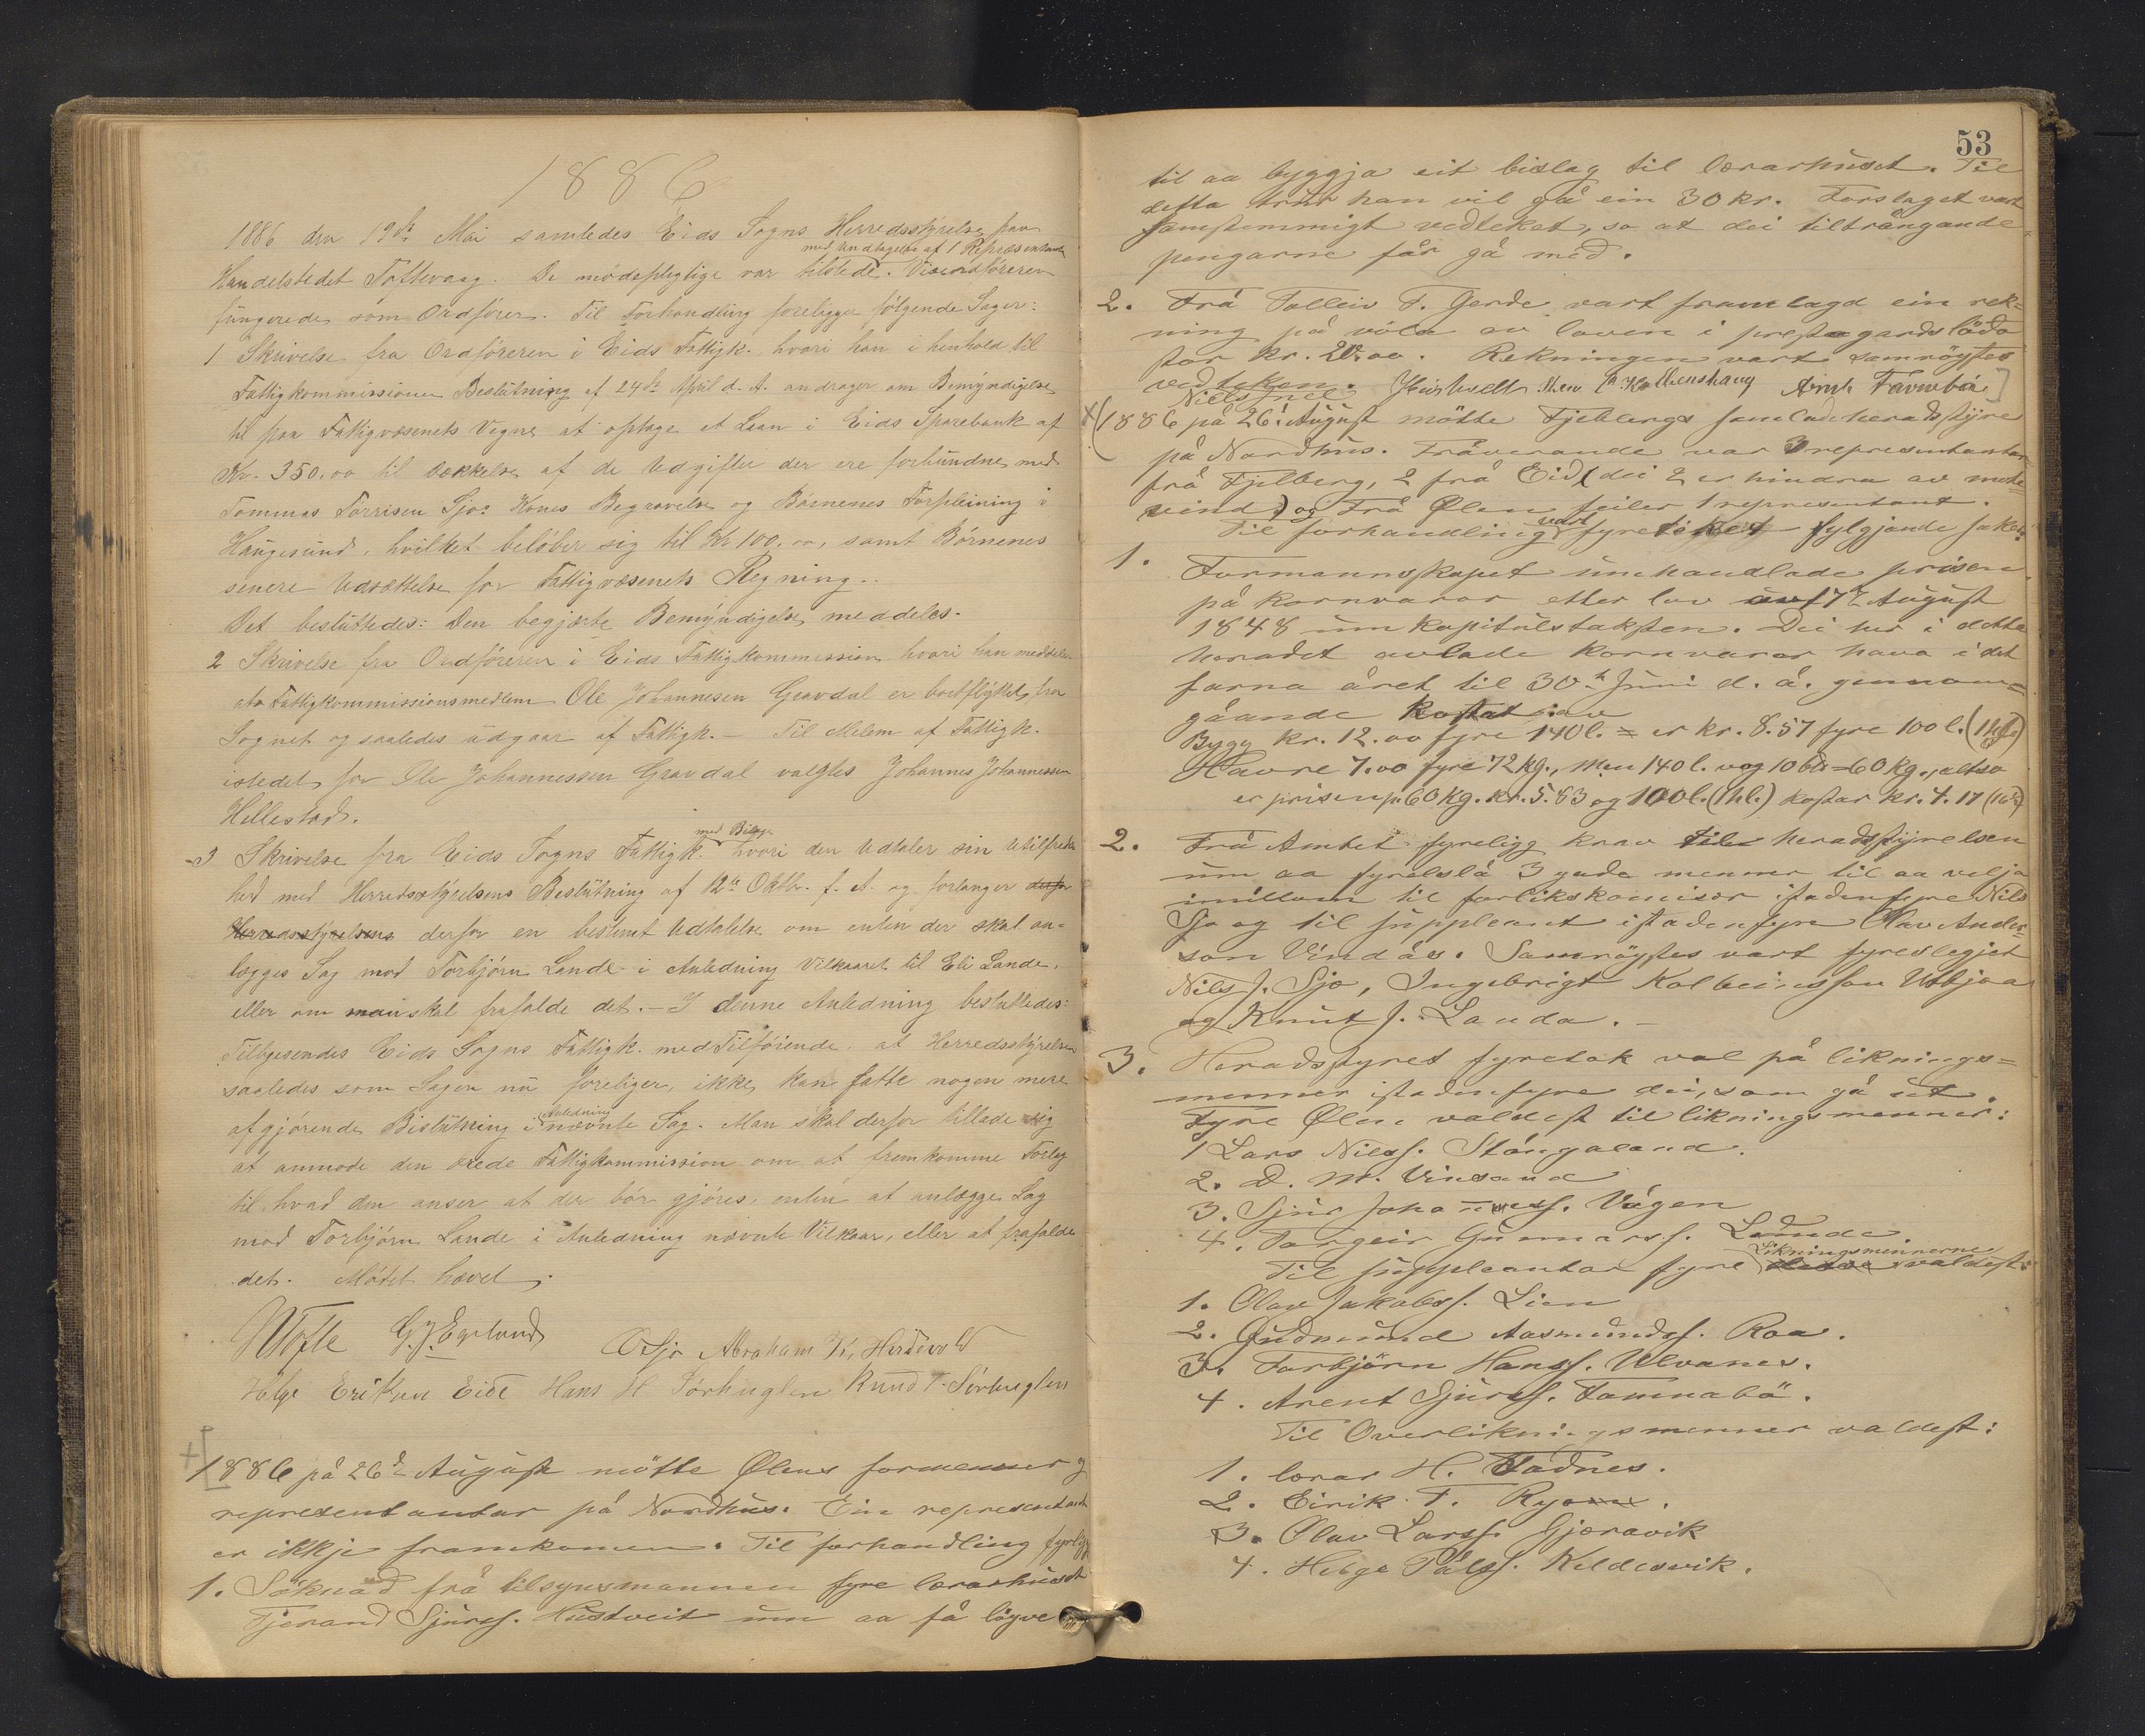 1886
1886 den 19de Mai samledes Eids Sogns Herredsstyrelse paa
med Undtagelse af 1 Repræsentant
Handelstedet Toftevaag. De mødepligtige var tilstede. Viseordføreren
fungerede som Ordfører. Til Forhandling foreligger følgende Sager:
1 Skrivelse fra Ordføreren i Eids Fattigk. hvori han i henhold til
Fattigkommissionens Beslutning af 24de April d. A. andrager om Bemyndigelse
til paa Fattigvæsenets Vegne at optage et Laan i Eids Sparebank af
Kr. 350.00 til Dækkelse af de Udgifter der ere forbundne med
Tommas Torrisen Sjos Kones Begravelse og Børnenes Forpleining i
Haugesund, hvilket beløber sig til Kr 100.00, samt Børnenes
senere Udsættelse for Fattigvæsenets Regning.
Det besluttedes: Den begjærte Bemyndigelse meddeles.
2 Skrivelse fra Ordføreren i Eids Fattigkommission hvori han meddeler
at Fattigkommissionsmedlem Ole Johannesen Gravdal er bortflyttet fra
Sognet og saaledes udgaar af Fattigk. – Til Melem af Fattigk.
istedet for Ole Johannessen Gravdal valgtes Johannes Johannessen
Hellestad.
med Bilage
3 Skrivelse fra Eids Sogns Fattigk. hvori den Udtaler sin Utilfreds
hed med Herredsstyrelsens Beslutning af 12te Oktbr. f. A. og forlanger derfor
Herredsstyrelsens derfor en bestemt Udtalelse om enten der skal an-
lægges Sag mod Torbjørn Lande i Anledning Vilkaaret til Eli Lande,
eller om man skal frafalde det. – I denne Anledning besluttedes:
Tilbagesendes Eids Sogns Fattigk. med Tilføiende, at Herredsstyrelsen
saaledes som Sagen nu foreliger, ikke kan fatte nogen mere
Anledning
afgjørende Beslutning i nævnte Sag. Man skal derfor tillade sig
at anmode den ærede Fattigkommission om at fremkomme Forlag
til hvad den anser at der bør gjøres, enten at anlægge Sag
mod Torbjørn Lande i Anledning nævnte Vilkaar, eller at frafalde
det. Mødet hævet.
Tofte G. J. Egeland O Sjo Abraham K. Herdevold
Helge Eriksen Eide Hans H Sørhuglen Knud T. Sørhuglen
1886 på 26de August mötte Ølens formenner og
representantar på Nordhus. Ein representant
er ikkje framkomen. Til forhandling fyrligg
1. Söknad frå tilsynsmannen fyre lærarhuset
Tjerand Sjurss. Hustveit um aa få löyve
53
til aa byggja eit bislag til lærarhuset. Til
detta trur han vil gå ein 30 kr. Forslaget vart
samstemmigt vedteket, so at dei tiltrångande
pengarne får gå med.
2. Frå Tolleiv T. Gerde vart framlagd ein rek-
ning på völa av loven i prestegardslöda
stor kr. 20.00. Rekningen vart samröystes
vedteken.
1886 på 26. August mötte Fjelbergs samlade heradstyre
på Nordhus. Fråverande var 3 representantar
frå Fjelberg, 2 frå Eid (dei 2 er hindra av mote-
vind) og Frå Ølen feiler 1 representant.
vart
Til forhandling fyreteket fylgjande saker:
1. Formannskapet umhandlade prisen
på kornvaror etter lov av 17de August
1848 um kapitulstaksten. Dei her i detta
heradet avlade kornvaror hava i det
farna året til 30te Juni d. å. gjennom-
gåande kostat:
Bygg kr. 12.00 fyre 140 l. = er kr. 8.57 fyre 100 l.
Havre 7.00 fyre 72 kg., men 140 l. vog = 60 kg., altso
er prisen pr 60 kg. kr. 5.83 og 100 l. (1 hl.) kostar kr. 4.17
2. Frå Amtet fyreligg krav til heradstyrelsen
um aa fyreslå 3 gode menner til aa velja
imillom til forlikskomisær istadenfyre Nils
Sjo og til suppleant istadenfyre Olav Ander-
son Vindås. Samröystes vart fyreslegjet
Nils J. Sjo, Ingebrigt Kolbeinsson Utbjoa
og Knut J. Landa. –
3. Heradstyret fyretok val på liknings-
menner istadenfyre dei, som gå ut.
Fyre Ølen valdest til likningsmenner:
1 Lars Nilss. Stångaland.
2. D. M. Vinsand
3. Sjur Johanness. Vågen
4. Torgeir Gunnarss. Lunde.
Likningsmennerne
Til suppleantar fyre valdest:
1. Olav Jakobss. Lien
2. Gudmund Aasmundss. Roa.
3. Torbjörn Hanss. Ulvanes.
4. Arent Sjurss. Tamnabö.
Til Overlikningsmenner valdest:
1. lærar H. Tadnes.
2. Eirik T.
3. Olav Larss. Gjeravik
4. Helge Pålss. Kildesvik.